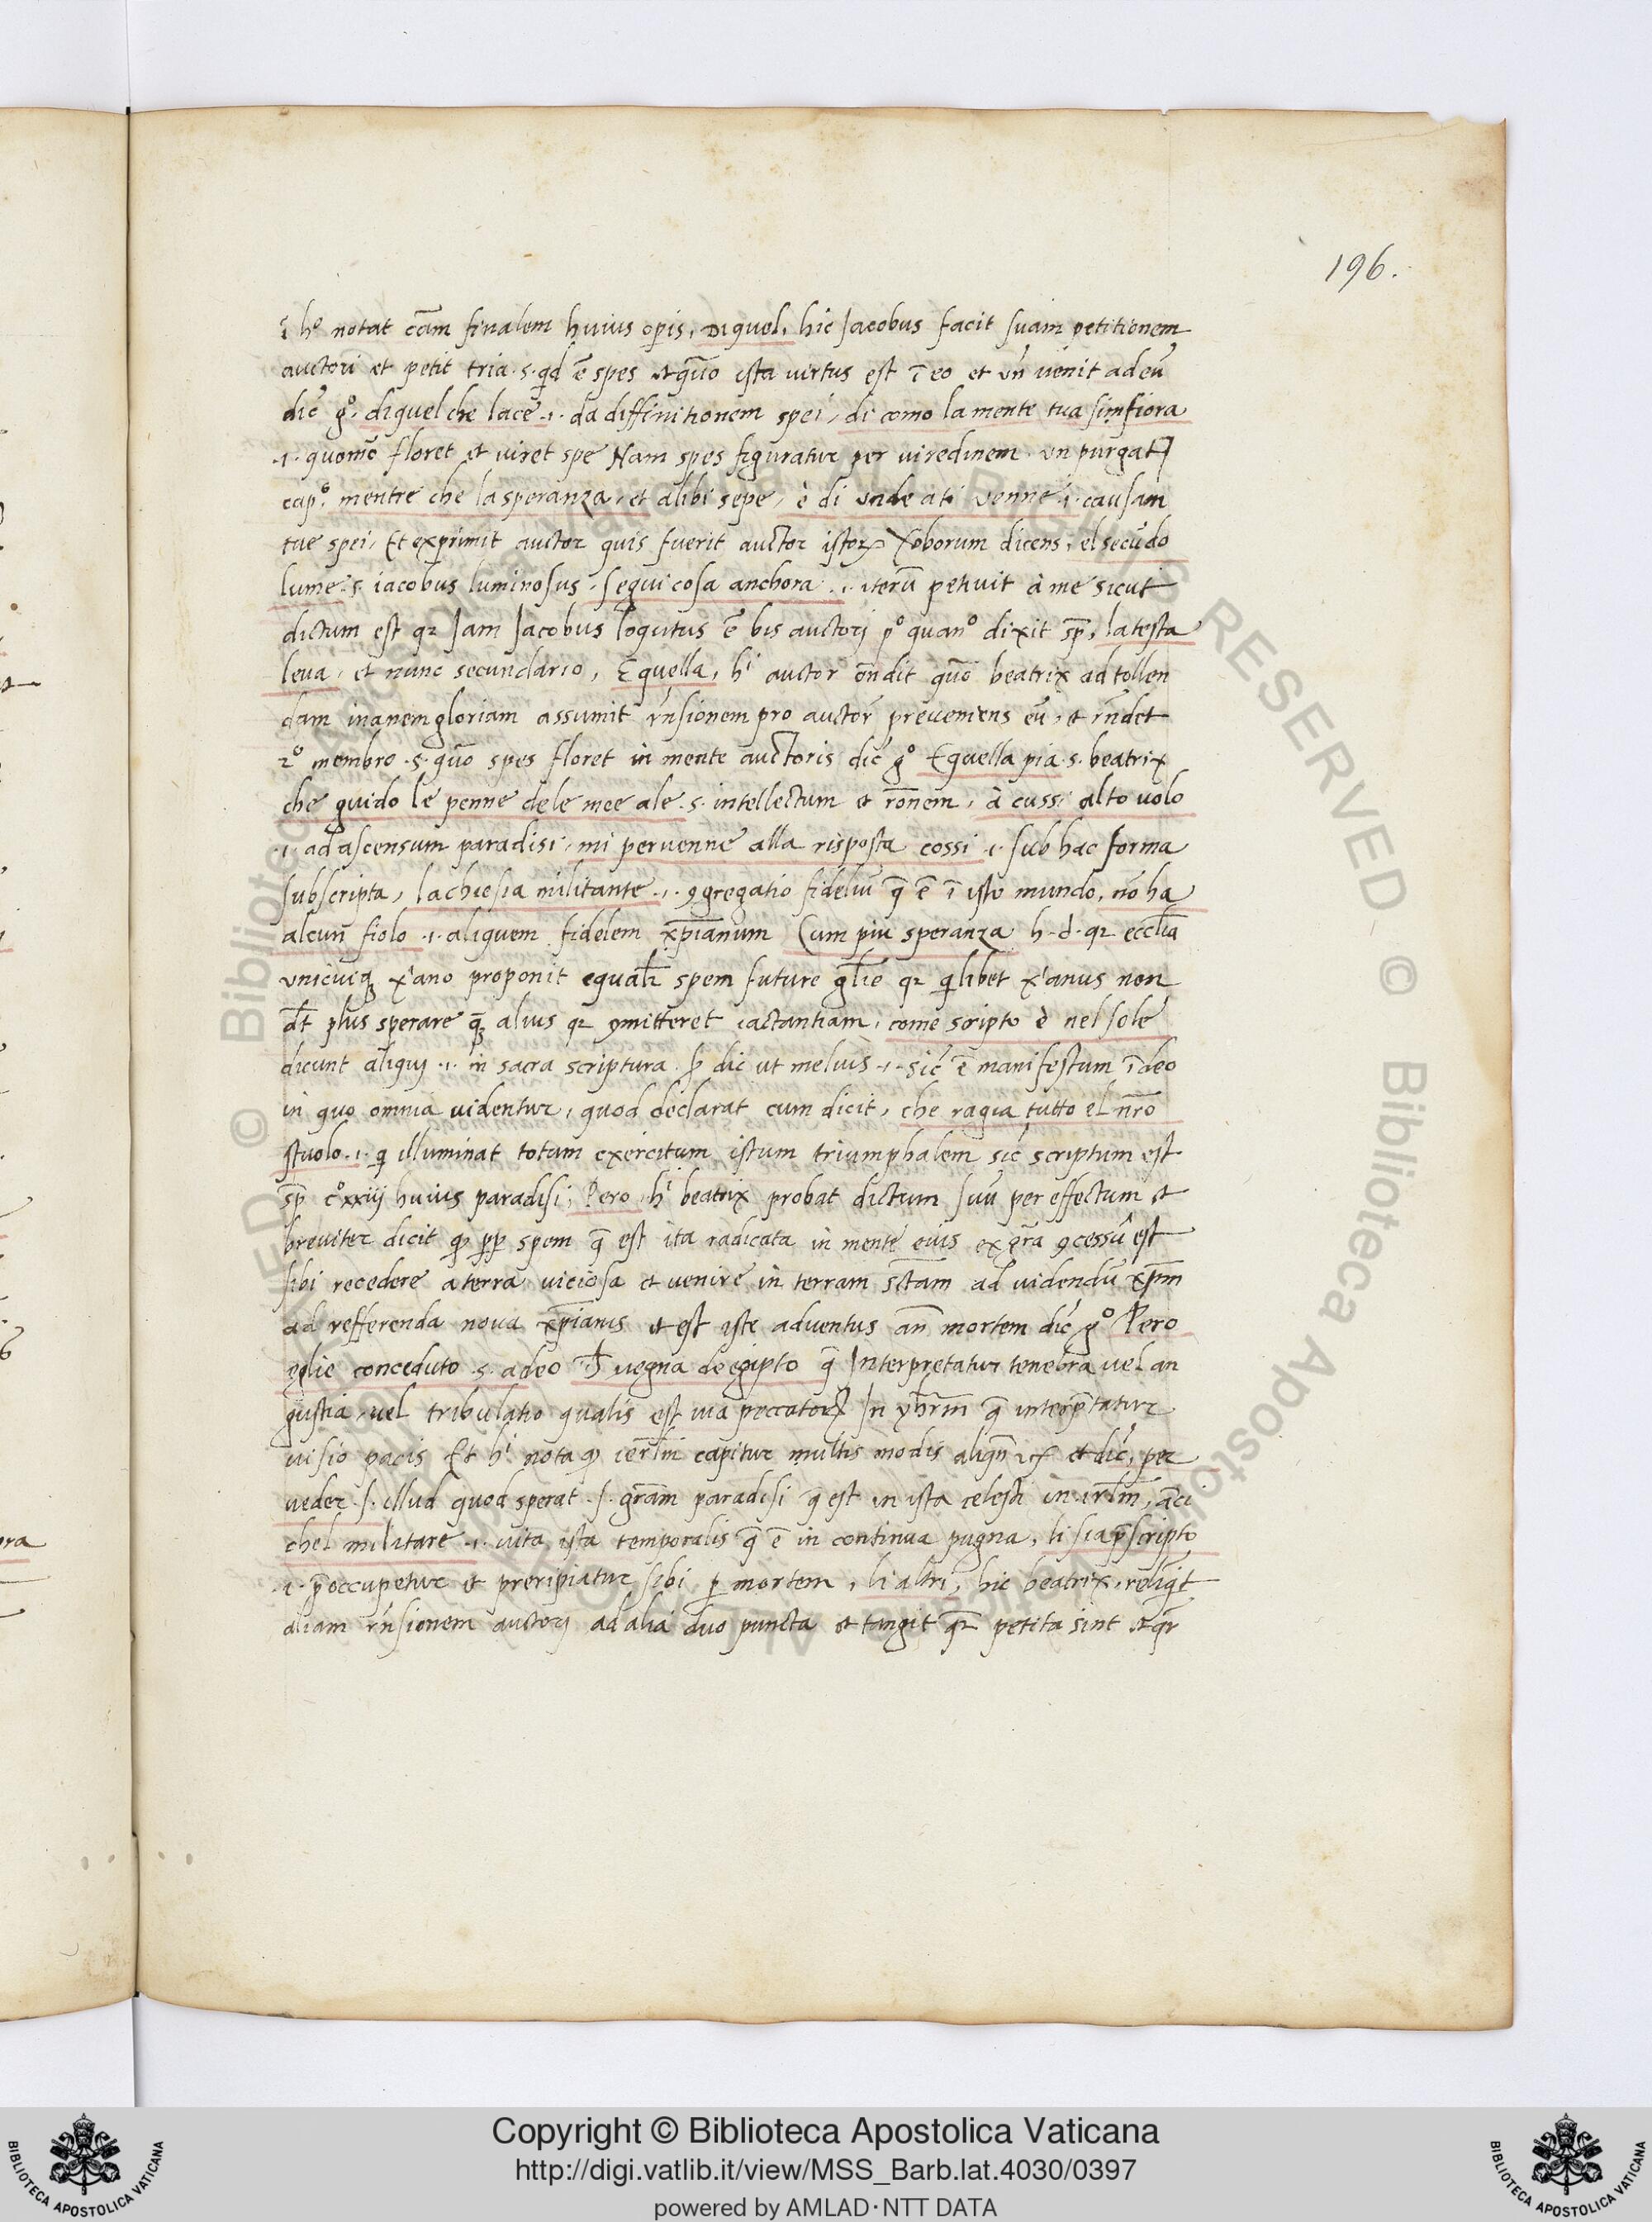 196.
ĩ hº notat cãm finalem huius opis, Di quel, hic Jacobus facit suam petitionem
auctori et petit tria .s. qd ẽ spes et quõ ista virtus est ĩ eo et uñ uenit ad eũ
dic̃ gº. di quel che lace .i. da diffinitionem spei, di como la mente tua sim fiora
.i. quomõ floret et viret spe Nam spes figuratur per viredinem. un purgatꝶ
capº. mentre che la speranza, et alibi sepe, è di unde ati venne .i. causam
tue spei, Et exprimit auctor quis fuerit auctor istorꝝ verborum dicens, el secũdo
lume .s. iacobus luminosus, segui cosa anchora .i. iterũ petiuit à me sicut
dictum est qz Jam Jacobus loqutus ẽ bis auctorj pº quanº dixit sp̃, la testa
leua, et nunc secundario, Equella, hⁱ auctor õndit quõ beatrix ad tollen
dam inanem gloriam assumit rñsionem pro auctorẽ preueniens eũ, et rñdet
2º membro .s. quõ spes floret in mente auctoris dic̃ gº Equella pia .s. beatrix
che guido le penne dele mee ale .s. intellectum et rõnem, à cussi alto uolo
.i. ad ascensum paradisi, mi peruenne alla risposta cossi .i. sub hac forma
subscripta, la chiesia militante .i. ꝯgregatio fideliũ q̃ ẽ ĩ isto mundo, nõ ha
alcun fiolo .i. aliquem fidelem xp̃ianum Cum piu speranza h. d. qz eccl̃ia
unicuiqꝫ x'ano proponit equal'r spem future gl̃ie qz quilibet x'anus non
dꝫ plus sperare qꝫ alius qz ꝯmitteret iactantiam, come scripto è nel sole
dicunt aliqui .i. in sacra scriptura. sꝫ dic ut melius .i. sic̃ ẽ manifestum ĩ deo
in quo omnia uidentur, quod declarat cum dicit, che ragia tutto el nr̃o
stuolo .i. qi illuminat totum exercitum istum triumphalem sic̃ scriptum est
sp̃ cº xxiij huius paradisi, Pero hⁱ beatrix probat dictum suũ per effectum et
breuiter dicit qꝫ pp̃ spem q̃ est ita radicata in mente eius ex gr̃a ꝯcessũ est
sibi recedere a terra viciosa et venire in terram sctam ad uidendũ xp̃m
ad refferenda noua xp̃ianis et est iste aduentus añ mortem dic̃ gº Pero
eglie conceduto .s. a deo ch' vegna de egipto q̃ Interpretatur tenebra vel an
gustia, vel tribulatio qualis est uia peccatorꝝ In yhr̃m q̃ interp̃tatur
uisio pacis Et hⁱ nota qꝫ ier̃lm capitur multis modis et dic̃, per
veder .s. illud quod sperat .s. gr̃am paradisi q̃ est in ista celesti in irl̃m, ãci
chel militare .i. uita ista temporalis q̃ ẽ in continua pugna, li sia p̃scripto
.i. p̃occupetur et preripiatur sibi p mortem, li altri, hic beatrix, relinq̃t
aliam rñsionem auctorj ad alia duo puncta et tangit qr̃ petita sint et qr̃
Copyright © Biblioteca Apostolica Vaticana
http://digi.vatlib.it/view/MSS_Barb.lat.4030/0397
powered by AMLAD·NTT DATA